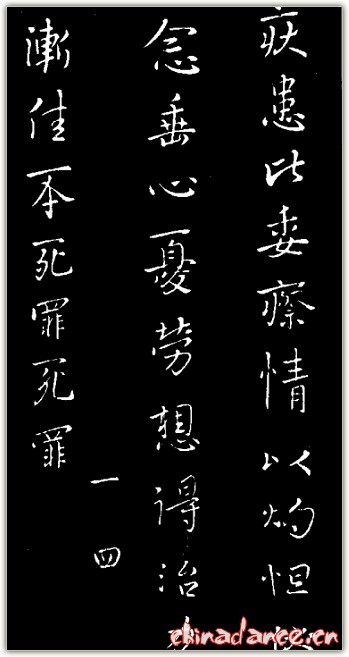 疾患比委瘵情以灼怛
念垂心憂勞想得治
漸佳死罪死罪
一四
chinadance.cn